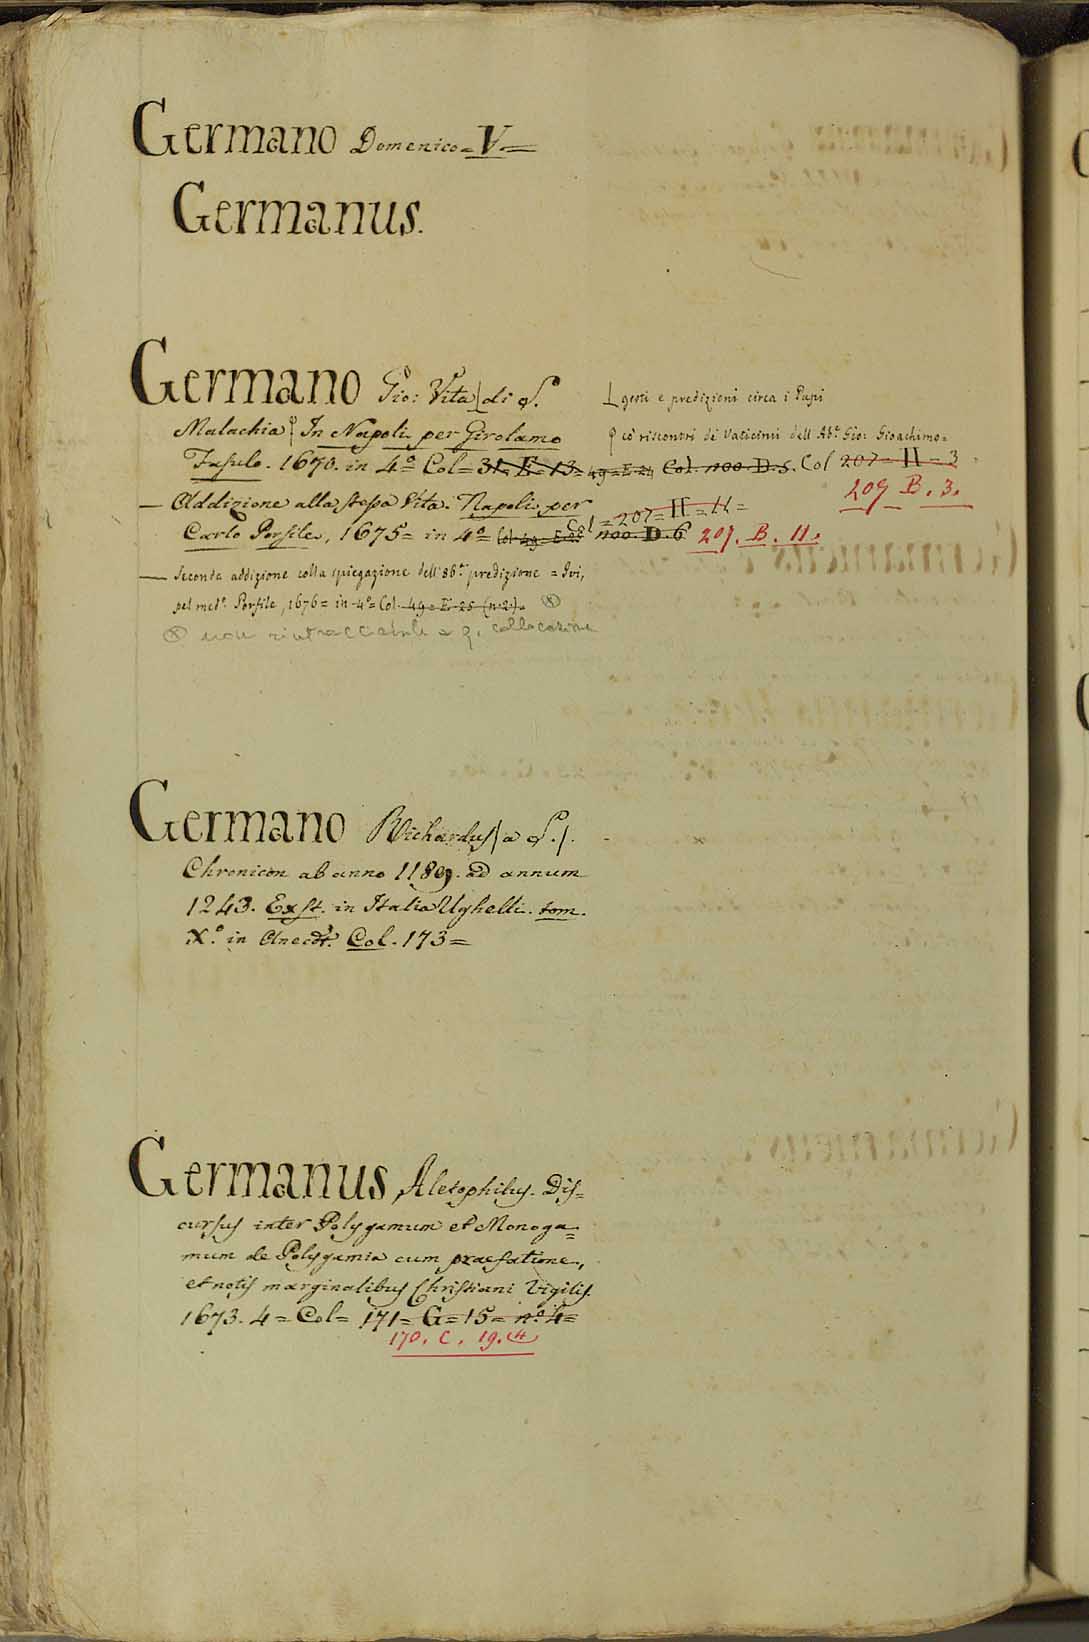 Germano Domenico = V. =
Germanus.
Germano Gio: Vita | di S.
L gesti e predizioni circa i Papi
Malachia In Napoli per Girolamo
co' riscontri de Vaticinii dell'Ab.e Gio: Gioachimo =
Fasulo. 1670. in 4.o Col = 31. E. 13 = 49 = E = 24 Col. 100. D. 5. Col 207 = H = 3
209 B. 3.
— Addizione alla stessa Vita. Napoli per
Col = 207 = H = 11 =
Carlo Porsile, 1675 = in 4.o = Col 49 = E 100. D. 6 209. B. 11.
— Seconda addizione colla spiegazione dell'86.a predizione = Ivi,
pel med.o Porsile, 1676 = in 4.o = Col. 49 = E. 25 (n. 2). ⊗
⊗ non rintracciabile a q. collocazione
Germano Richardus | a S. |.
Chronicon ab anno 1189. ad annum
1243. Exst. in Italia Ughelli. tom.
X.o in Anecdt. Col. 173 =
Germanus Aletophilus. Dis=
cursus inter Polygamum et Monoga=
mum de Polygamia cum praefatione,
et notis marginalibus Christiani Vigilis.
1673. 4 = Col = 171 = G = 15 = n.o 4 =
170. C. 19. (4